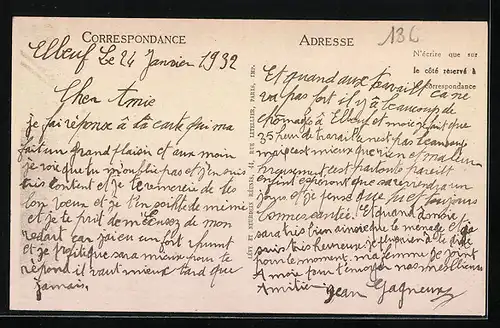 CORRESPONDANCE
ADRESSE
13L
N'écrire que sur
le côté réservé à
correspondance
LÉVY ET NEURDEIN RÉUNIS, 44, RUE LETELLIER, PARIS, IMP.
Elbeuf Le 24 Janvier 1932
Cher Amie
je fai réponse à ta carte qui ma
fait un grand plaisir et aux moin
je voie que tu m'oublie pas et j'en suis
très content et je te remercie de tes
bon vœux et je t'en souhète de mème
et je te prit de m'Ecusez de mon
redart car j'ai eu un fort rhunt
et je profite que sa mieux pour te
répond il vaut mieux tard que
jamais.
Et quand aux travaille ca ne
va pas fort il y à beaucoup de
chomage à Elbeuf et moi je fait que
35 heur de travail ce n'est pas beaucoup
mais c'est mieux que rien et malheur
eusement c'est partout pareille
enfint espéront que sa reviendra un
jour et je pense que tu et toujours
bonne santé. Et quand a moi
sa va très bien ainsi que le menage et je
suis très heureuse
pour le moment. ma femme je joint
A moie pour t'envoyer nas meilleurs
Amitier
Jean Gagneux